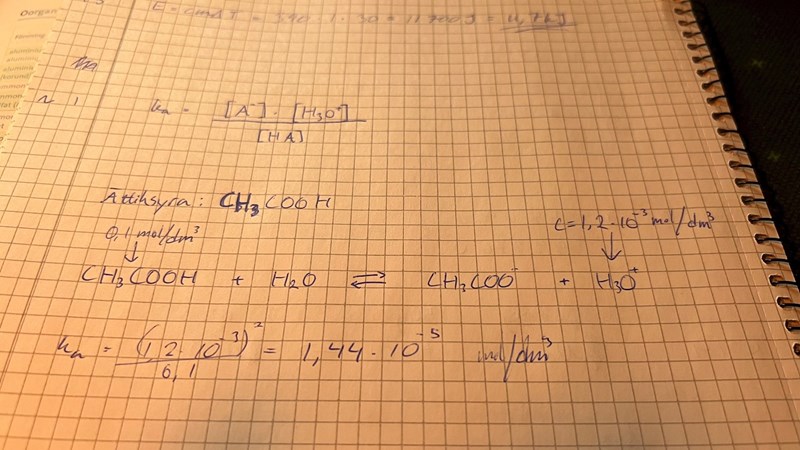 E = cm∆T = 390 · 1 · 30 = 11700 J = 11,7 kJ
~ 1
ka = [A⁻] · [H₃O⁺] / [HA]
Ättiksyra: CH₃COOH
0,1 mol/dm³
c = 1,2 · 10⁻³ mol/dm³
CH₃COOH + H₂O ⇌ CH₃COO⁻ + H₃O⁺
ka = (1,2 · 10⁻³)² / 0,1 = 1,44 · 10⁻⁵ mol/dm³